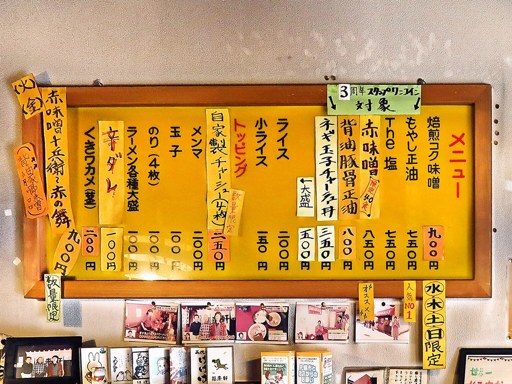 メニュー
焙煎コク味噌 九〇〇円
もやし正油 七五〇円
The 塩 七五〇円
赤味噌 八五〇円
背油豚骨正油 八〇〇円
ネギ玉子チャーシュー丼 三五〇円
←大盛 五〇〇円
ライス 二〇〇円
小ライス 一五〇円
トッピング
自家製チャーシュー(4枚) 二五〇円
メンマ 一〇〇円
玉子 一〇〇円
のり(4枚) 一〇〇円
ラーメン各種大盛 一〇〇円
辛ダレ 一〇〇円
くきワカメ(茎) 二〇〇円
3周年スタンプワンコイン
対象
(火)
(金)
赤味噌十兵衛~赤の舞 九〇〇円
数量限定
オススメ
人気NO1
水木土日限定